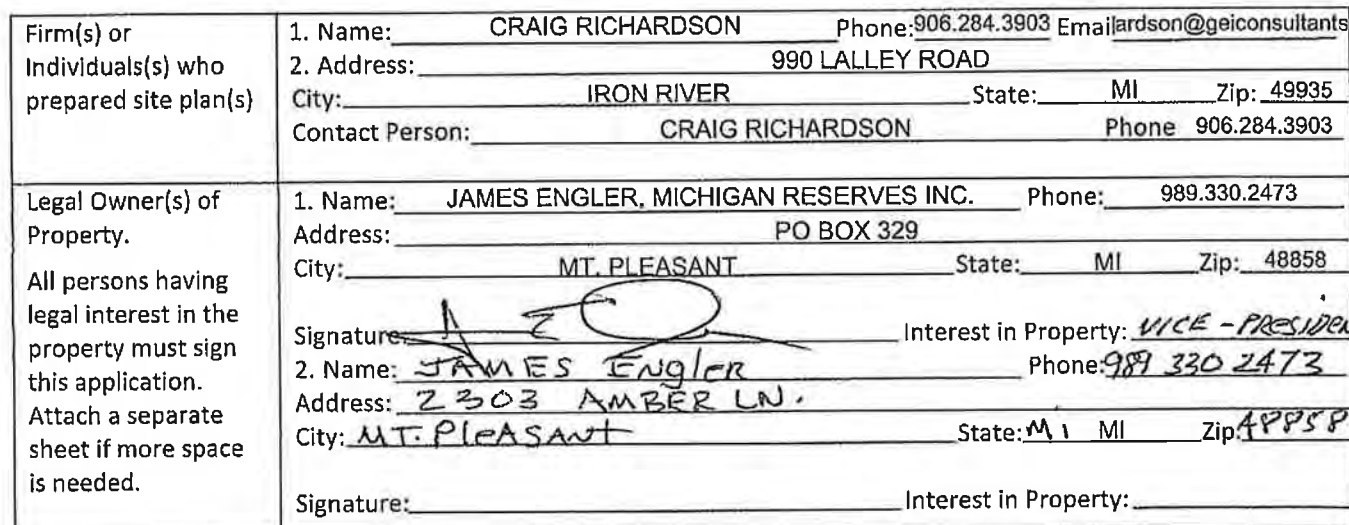 Firm(s) or
Individuals(s) who
prepared site plan(s)
1. Name: CRAIG RICHARDSON Phone: 906.284.3903 Email ardson@geiconsultants
2. Address: 990 LALLEY ROAD
City: IRON RIVER State: MI Zip: 49935
Contact Person: CRAIG RICHARDSON Phone 906.284.3903
Legal Owner(s) of
Property.
All persons having
legal interest in the
property must sign
this application.
Attach a separate
sheet if more space
is needed.
1. Name: JAMES ENGLER, MICHIGAN RESERVES INC. Phone: 989.330.2473
Address: PO BOX 329
City: MT. PLEASANT State: MI Zip: 48858
Signature: Interest in Property: VICE-PRESIDEN
2. Name: JAMES ENglER Phone: 989 330 2473
Address: 2303 AMBER LN.
City: MT. PleASANT State: MI MI Zip: 48858
Signature: Interest in Property: